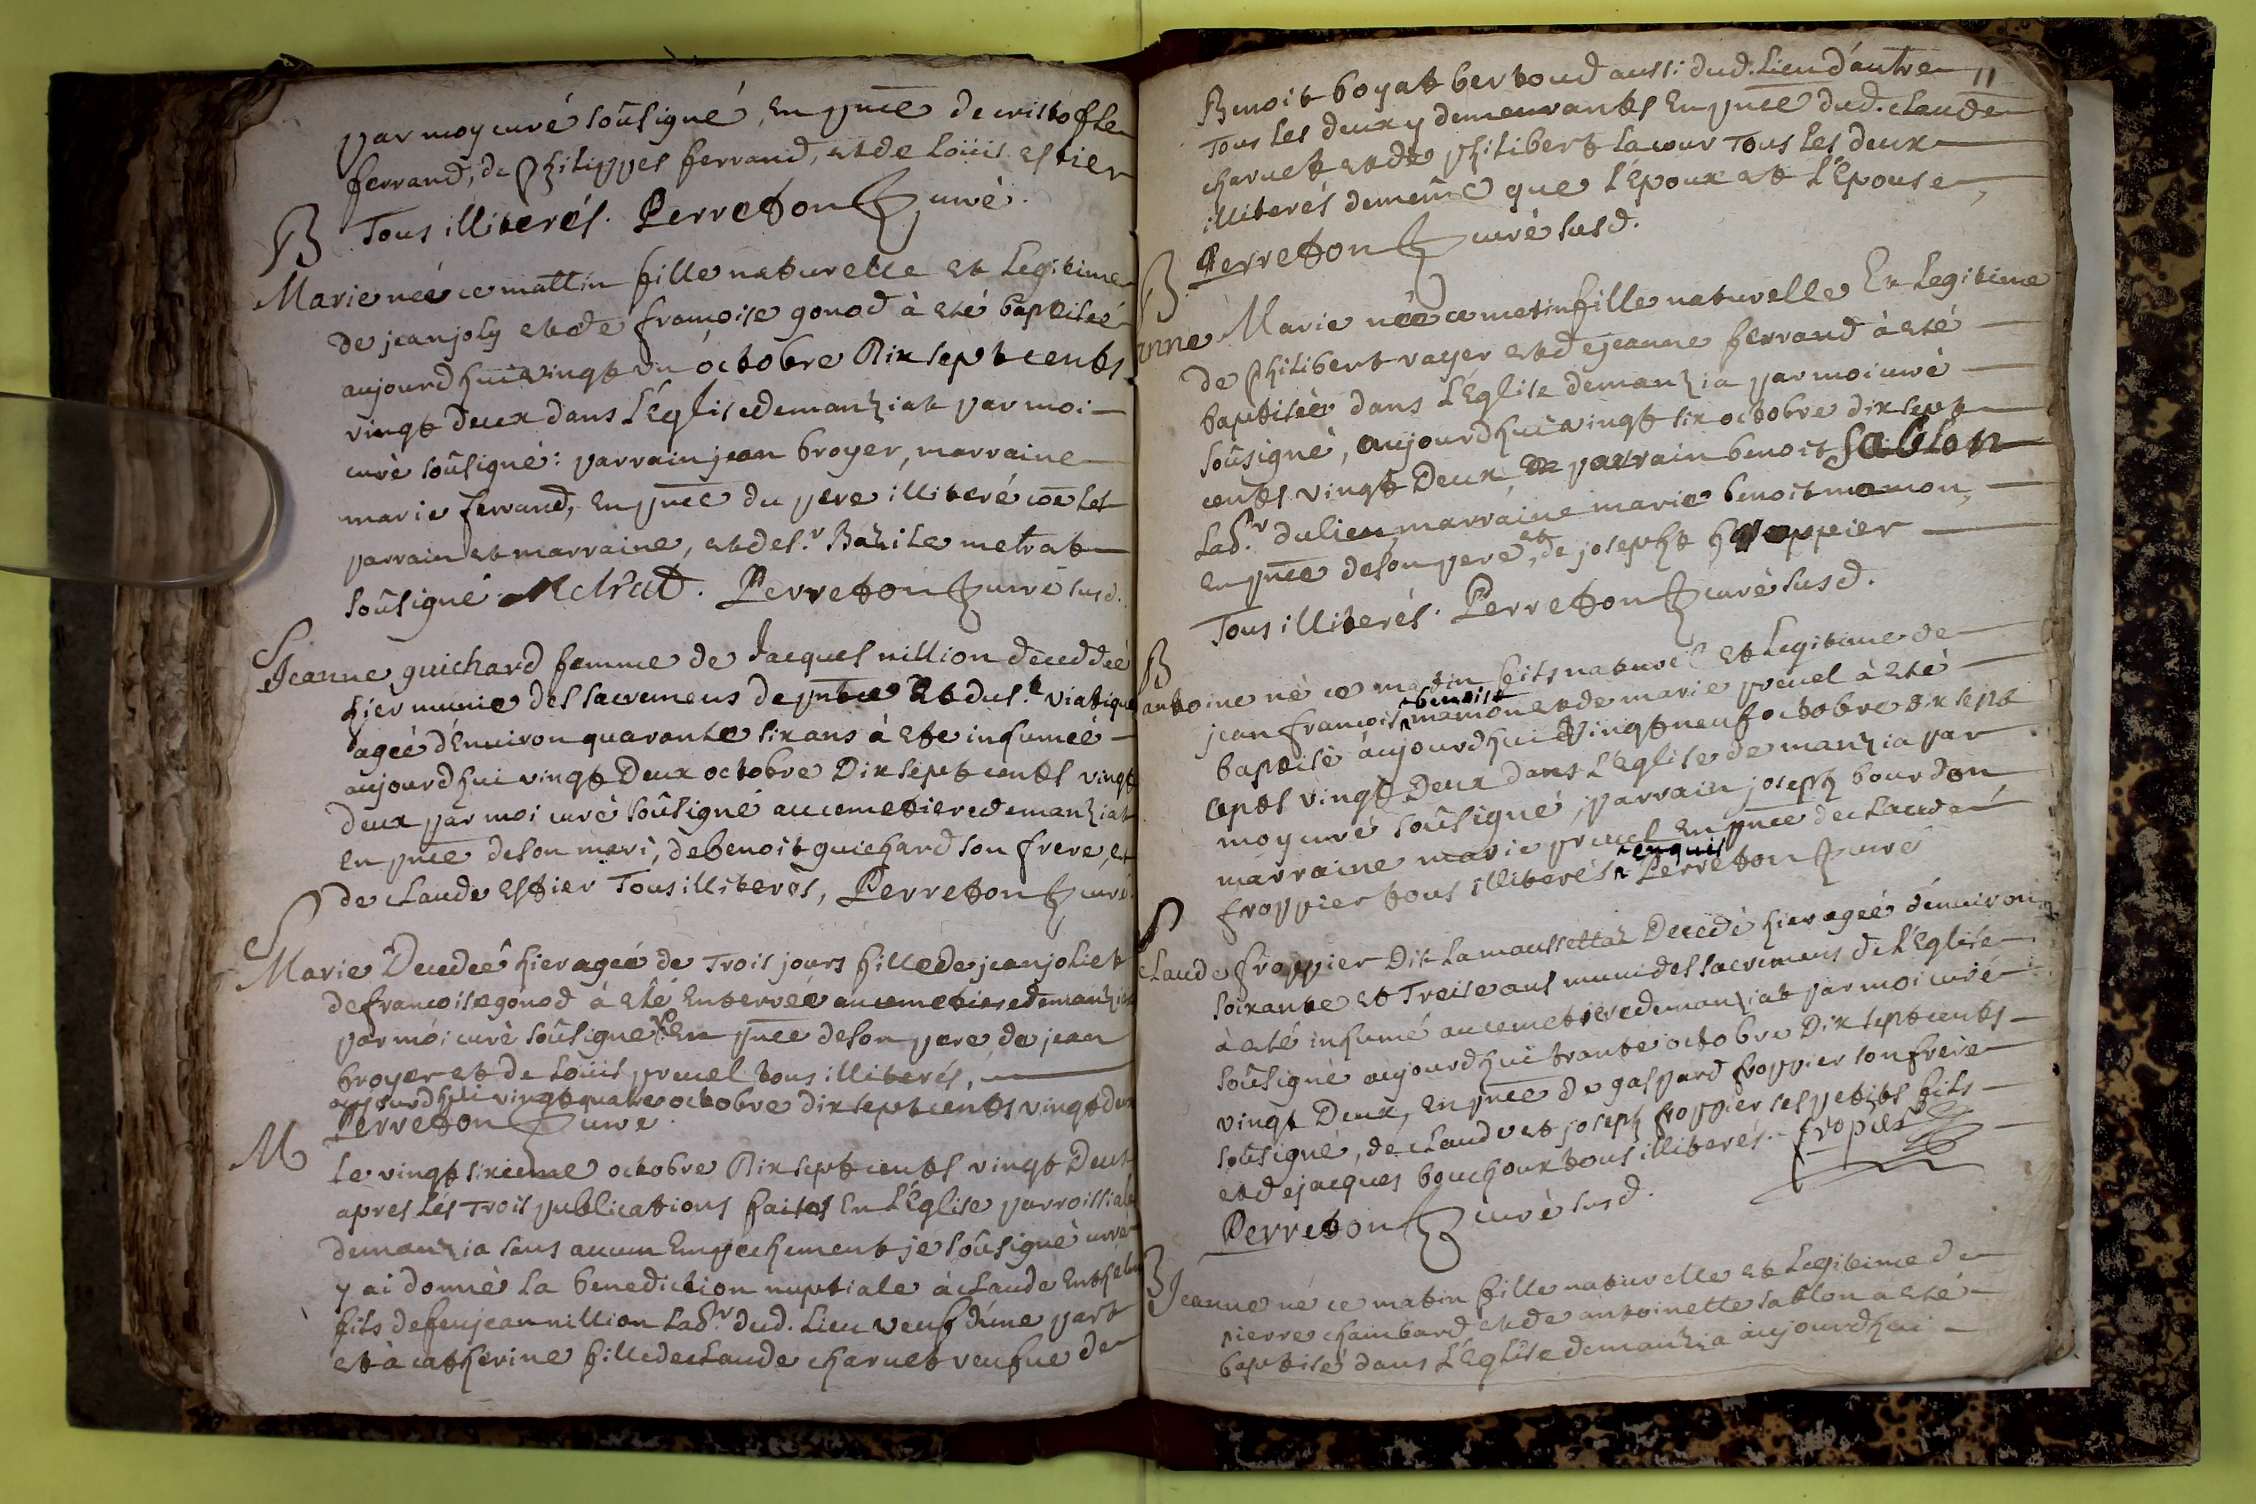 par moy curé soûsigné, En pnce de cristofle
ferrand, de Philippes ferrand, et de Loüis estier
Tous illiterés. Perreton curé.
B
Marie neé ce mattin fille naturelle et Legitime
de jean joly et de francoise gonod à eté baptiseé
aujourd huui vingt un octobre Dix sept cents
vingt deux dans L'Eglise de manziat par moi
curé soûsigné: parrain jean broyer, marraine
marie ferrand, En pnce du pere illiteré coe les
parrain et marraine, et de s.r Bazile metrat
soûsigné Metrat. Perreton curé susd.
S
Jeanne guichard femme de Jacques nillion decedeé
hier munie des sacremens de pntce et du s.t viatique
ageé d'Environ quarante six ans à ete inhumeé
aujourd hui vingt Deux octobre Dix sept cents vingt
deux par moi curé soûsigné au cemetiere de manziat
En pnce de son mari, de benoit guichard son frere, et
de Claude Estier Tous illiterés, Perreton curé.
S
Marie Decedeé hier ageé de Trois jours fille de jean joliet
de francoise gonod à eté Enterreé au cemetiere de manziat
par moi curé soûsigné En pnce de son pere de jean
broyer et de Loüis pruel tous illiterés,
aujourd hui vingt quatre octobre dix sept cents vingt deux
Perreton curé
M
Le vingt sixieme octobre Dix sept cents vingt Deux
apres Les Trois publications faites En L'Eglise parroissiale
de manzia sans aucun Empechement je soûsigné curé
y ai donné La benediction nuptiale à Claude
fils de feu jean nillion Lab.r dud. Lieu veuf d'une part
et à catherine fille de Claude charnet veufue de
11
Benoit boyat bertoud aussi dud. Lieu d'autre
Tous Les deux y demeurants En pnce dud. Claude
charnet et de philibert Lacour Tous Les deux
illiterés de meme que L'Epoux et L'Epouse
Perreton curé susd.
B
anne Marie neé ce metin fille naturelle Et Legitime
de Philibert rayer et de jeanne ferrand à eté
baptiseé dans L'Eglise de manzia par moi curé
soûsigné, aujourd hui vingt six octobre dix sept
cents vingt Deux parrain benoit Sablon
Lab.r du lieu, marraine marie benoit mamon,
En pnce de son pere et de josepht froppier
Tous illiterés. Perreton curé susd.
B
antoine né ce matin fils naturel et Legitime de
jean francois benoist mamon et de marie pruel à eté
baptisé aujourd hui vingt neuf octobre dix sept
cents vingt Deux dans L'Eglise de manzia par
moy curé soûsigné, parrain joseph bourdon
marraine marie pruel En pnce de Claude
froppier tous illiterés enquis Perreton curé
S
Claude froppier Dit La maussettaz Decedé hier ageé d'environ
soixante et Treise ans muni des sacremens de L'Eglise
à eté inhumé au cemetiere de manziat par moi curé
soûsigné aujourd hui trante octobre Dix sept cents
vingt Deux, En pnce de gaspard froppier son frere
soûsigné, de Claude et joseph froppier ses petits fils
et de jacques bouchoux tous illiterés. fropier
Perreton curé susd.
B
Jeanne né ce matin fille naturelle et Legitime de
pierre chambard et de antoinette sablon à eté
baptisé dans L'Eglise de manzia aujourdhui